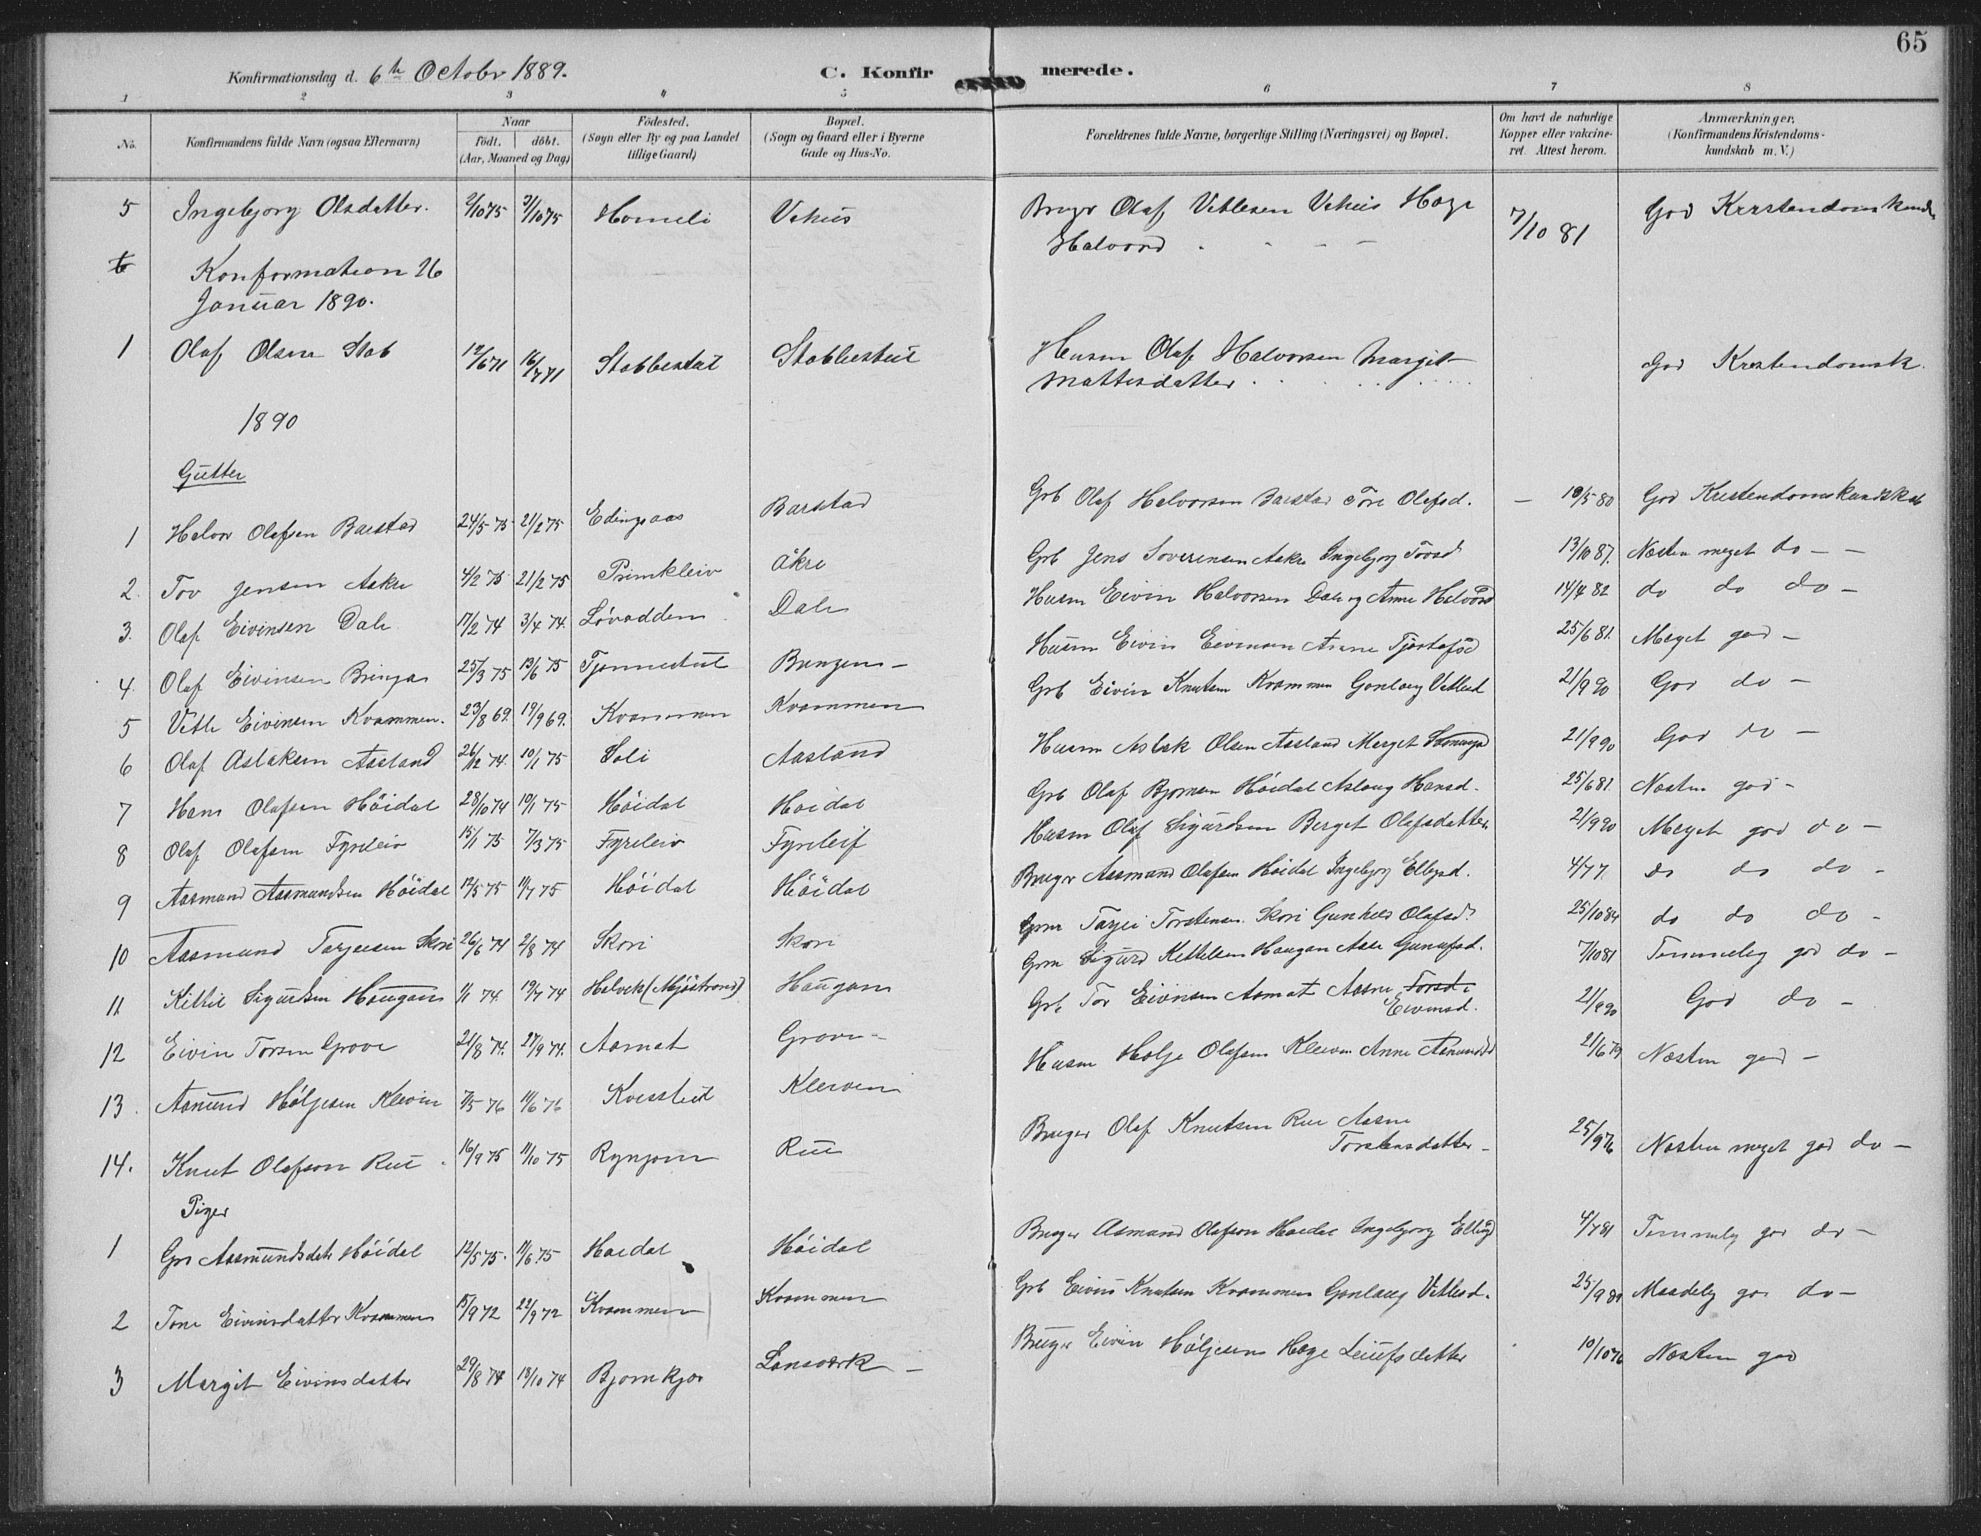 65
Konfirmationsdag d. 6te October 1889.
C. Konfirmerede.
1 2 3 4 5 6 7 8
No. Konfirmandens fulde Navn (ogsaa Efternavn) Naar født. døbt. (Aar, Maaned og Dag) Fødested. (Sogn eller By og paa Landet tillige Gaard) Bopæl. (Sogn og Gaard eller i Byerne Gade og Hus-No. Forældrenes fulde Navne, borgerlige Stilling (Næringsvei) og Bopæl. Om havt de naturlige Kopper eller vakcineret. Attest herom. Anmærkninger. (Konfirmandens Kristendomskundskab m. V.)
5 Ingebjorg Olsdatter. 2/10 75 31/10 75 Homeli Vehus Bruger Olaf Vetlesen Vehus Hæge 7/10 81 God Kristendomskunds
Halvord - - - -
6 Konformation 26
Januar 1890.
1 Olaf Olsen Stab 12/6 71 16/7 71 Stabbestul Stabbestul Husm Olaf Halvorsen Margit God Krestendomsk.
Mattesdatter
1890
Gutter
1 Halvor Olafsen Barstad 24/5 75 21/2 75 Edingsaas Barstad Grb Olaf Halvorsen Barstad Tone Olafsd. - 10/5 80 God Krestendomskundskab
2. Tov Jensen Aakre 4/2 75 21/2 75 Primkleiv Åkre Grb Jens Soverensen Aakre Ingebjorg Tovsd 13/10 87. Næsten meget do - -
3. Olaf Eivensen Dale 17/2 74 3/4 74. Løvodden Dale Husm Eivin Halvorsen Dale og Anne Halvord 14/4 82 do do do -
4. Olaf Eivinsen Bringa 25/3 75 13/6 75 Tjønnestul Bringen - Husm Eivin Eivensen Asne Tjøstofsd 25/6 81. Meget god -
5 Vetle Eivinsen Kvammen. 23/8 69. 19/9 69. Kvammen Kvammen Grb Eivin Knutsen Kvammen Gonlaug Vetlesd 21/9 90 God do -
6 Olaf Aslaksen Aasland 26/12 74. 10/1 75 Soli Aasland Husm Aslak Olsen Aasland Merget 21/9 90 God do -
7 Hans Olafsen Høidal 28/10 74 10/1 75 Høidal Hoidal Grb Olaf Bjornsen Høidal Aslaug Hansd. 25/6 81. Næsten god -
8 Olaf Olafsen Fyreleiv 15/1 75 7/3 75 Fyreleiv Fyreleif Husm Olaf Sigurdsen Berget Olafsdatter. 21/9 90 Meget god do -
9 Aasmund Aasmundsen Høidal 12/5 75 11/7 75 Høidal Høidal Bruger Aasmund Olafsen Høidal Ingebjorg Ellefsd. 4/7 7. do do do -
10 Aasmund Tarjeisen Skori 26/6 74 2/8 74 Skori Skori Grm Tarjei Torstensen Skori Gunhild Olafsd. 25/10 84 do do do -
11 Kittil Sigurdsen Haugan 1/1 74 19/7 74 Helvek (Mjøstrand) Haugan Grm Sigurd Kettelsen Haugan Aase Gunufsd. 7/10 81 Temmeleg god do -
12 Eivin Torsen Grove 21/8 74. 27/9 74. Aamat Grove - Grb Tor Eivinsen Aamat Aasne Torsd. Eivinsd. 21/9 90 God do -
13 Asmund Høljesen Kleivin 7/5 76 11/6 76 Kvesstul Kleiven Husm Holje Olafsen Kleiven Anne Asmundsd 21/6 79 Næsten god -
14. Knut Olafson Rue 16/9 75 11/10 75 Rynjom Rue Bruger Olaf Knutsen Rue Aasne Torstensdatter - 25/9 76 Næsten meget god do -
Piger
1 Gro Aasmundsdatr Høidal 12/5 75. 11/6 75 Hoidal Høidal Bruger Asmund Olafson Hoidal Ingebjorg Ellefsd 4/7 81 Temmeleg god do -
2 Tone Eivinsdatter Kvammen 15/9 72 22/9 72 Kvammen Kvammen Grb Eivin Knutsen Kvammen Gonlaug Vetlesd. 25/9 84 Maadeleg god do -
3 Margit Eivinsdatter 29/8 74 18/10 74 Bjornkjor Lonsværk - Bruger Eivin Høljesens Hæge Leiufsdatter 10/10 76 Næsten god